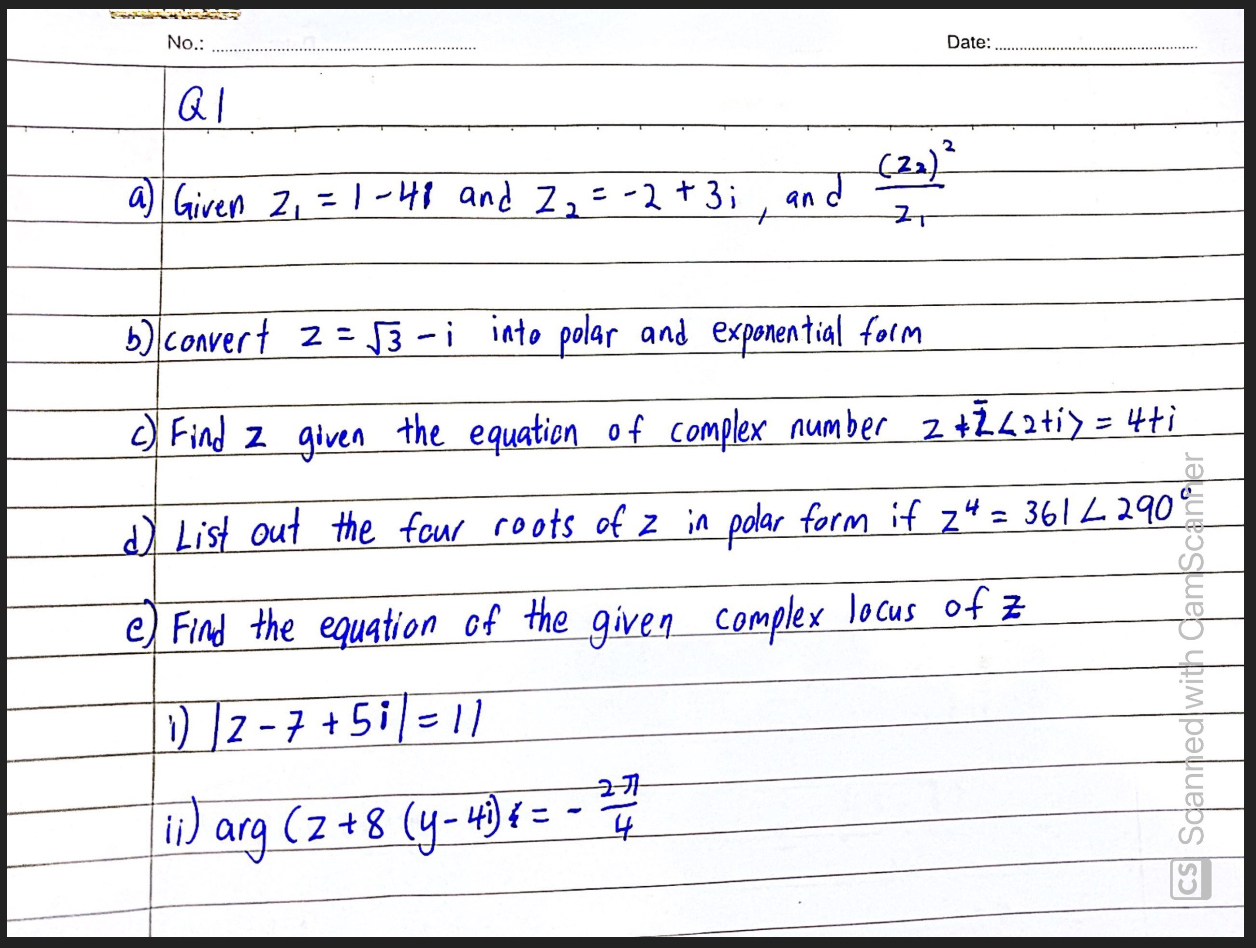 No.:
Date:
Q1
a) Given z₁ = 1 - 4i and z₂ = -2 + 3i, and (z₂)²/z₁
b) convert z = √3 - i into polar and exponential form
c) Find z given the equation of complex number z + z̄<2+i> = 4+i
d) List out the four roots of z in polar form if z⁴ = 361∠290°
e) Find the equation of the given complex locus of z
i) |z - 7 + 5i| = 11
ii) arg (z + 8 (y - 4i) = - 2π/4
CS Scanned with CamScanner